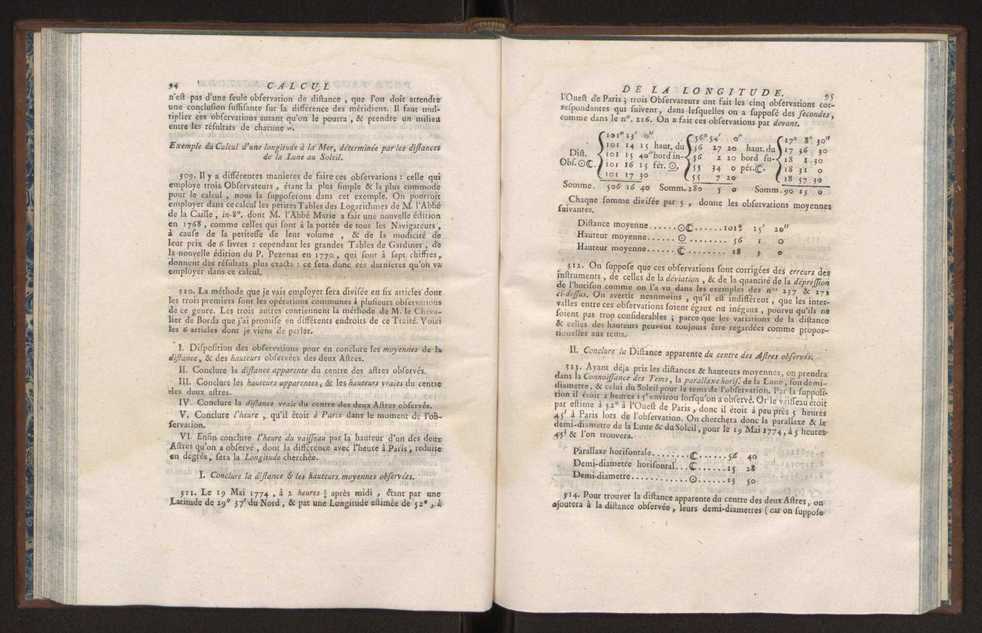 94 CALCUL
n'est pas d'une seule observation de distance , que l'on doit attendre
une conclusion suffisante sur la différence des méridiens. Il faut mul-
tiplier ces observations autant qu'on le pourra, & prendre un milieu
entre les résultats de chacune ».
Exemple du Calcul d'une longitude à la Mer, déterminée par les distances
de la Lune au Soleil.
509. Il y a différentes manieres de faire ces observations : celle qui
employe trois Observateurs , étant la plus simple & la plus commode
pour le calcul , nous la supposerons dans cet exemple. On pourroit
employer dans ce calcul les petites Tables des Logarithmes de M. l'Abbé
de la Caille , in-8°. dont M. l'Abbé Marie a fait une nouvelle édition
en 1768 , comme celles qui sont à la portée de tous les Navigateurs ,
à cause de la petitesse de leur volume , & de la modicité de
leur prix de 6 livres : cependant les grandes Tables de Gardiner , de
la nouvelle édition du P. Pezenas en 1770 , qui sont à sept chiffres,
donnent des résultats plus exacts : ce sera donc ces dernieres qu'on va
employer dans ce calcul.
510. La méthode que je vais employer sera divisée en six articles dont
les trois premiers sont les opérations communes à plusieurs observations
de ce genre. Les trois autres contiennent la méthode de M. le Cheva-
lier de Borda que j'ai promise en différents endroits de ce Traité. Voici
les 6 articles dont je viens de parler.
I. Disposition des observations pour en conclure les moyennes de la
distance, & des hauteurs observées des deux Astres.
II. Conclure la distance apparente du centre des astres observés.
III. Conclure les hauteurs apparentes, & les hauteurs vraies du centre
des deux astres.
IV. Conclure la distance vraie du centre des deux Astres observés.
V. Conclure l'heure , qu'il étoit à Paris dans le moment de l'ob-
servation.
VI. Enfin conclure l'heure du vaisseau par la hauteur d'un des deux
Astres qu'on a observé , dont la différence avec l'heure à Paris, réduite
en degrés, sera la Longitude cherchée.
I. Conclure la distance & les hauteurs moyennes observées.
511. Le 19 Mai 1774 , à 2 heures ¾ après midi , étant par une
Latitude de 29° 37' du Nord , & par une Longitude estimée de 52° , à
DE LA LONGITUDE. 95
l'Ouest de Paris ; trois Observateurs ont fait les cinq observations cor-
respondantes qui suivent , dans lesquelles on a supposé des secondes ,
comme dans le n°. 216. On a fait ces observations par devant.
101° 13' 0" 56° 54' 0" 17° 8' 30"
101 14 15 haut. du 56 27 20 haut. du 17 36 30
Dist. 101 15 40 bord in- 56 2 20 bord su- 18 8 30
Obs. ☉☾. 101 16 15 fér. ☉. 55 34 0 pér. ☾. 18 31 0
101 17 30 55 7 20 18 57 30
Somme. 506 16 40 Somm. 280 5 0 Somm. 90 15 0
Chaque somme divisée par 5 , donne les observations moyennes
suivantes.
Distance moyenne......☉☾......101° 15' 20"
Hauteur moyenne......☉........ 56 1 0
Hauteur moyenne......☾........ 18 3 0
512. On suppose que ces observations sont corrigées des erreurs des
instruments , de celles de la déviation , & de la quantité de la dépression
de l'horison comme on l'a vu dans les exemples des nos 237 & 272
ci-dessus. On avertit neanmoins , qu'il est indifférent , que les inter-
valles entre ces observations soient égaux ou inégaux , pourvu qu'ils ne
soient pas trop considérables ; parce que les variations de la distance
& celles des hauteurs peuvent toujours être regardées comme propor-
tionelles aux tems.
II. Conclure la Distance apparente du centre des Astres observés.
513. Ayant déja pris les distances & hauteurs moyennes, on prendra
dans la Connoissance des Tems, la parallaxe horis. de la Lune , son demi-
diametre, & celui du Soleil pour le tems de l'observation. Par la supposi-
tion il étoit 2 heures 15' environ lorsqu'on a observé. Or le vaisseau étoit
par estime à 52° à l'Ouest de Paris , donc il étoit à peu près 5 heures
45' à Paris lors de l'observation. On cherchera donc la parallaxe & le
demi-diametre de la Lune & du Soleil , pour le 19 Mai 1774 , à 5 heures
45' & l'on trouvera.
Parallaxe horisontale........☾......56 40
Demi-diametre horisontal...☾......15 28
Demi-diametre............☉......15 50
514. Pour trouver la distance apparente du centre des deux Astres, on
ajoutera à la distance observée , leurs demi-diametres ( car on suppose